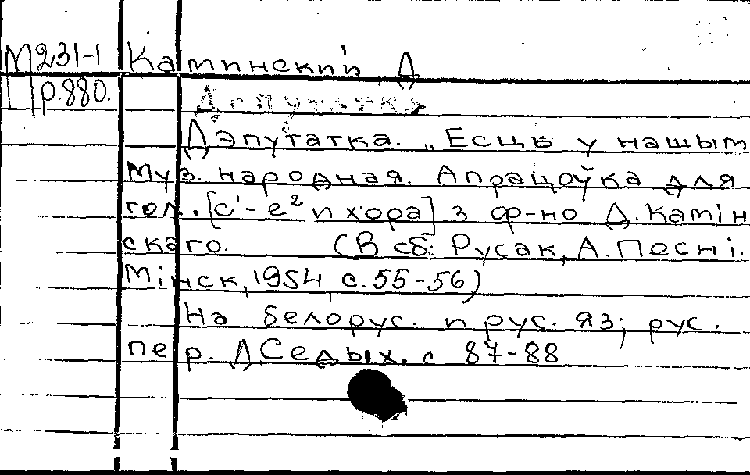 М231-1 Каминский, Д
р.880. Дэпутатка
Дэпутатка. „Есць у нашым
Муз. народная. Апрацоўка для
гол. [c¹-e² и хора] з ф-но Д. Камін
скаго. (В сб: Русак, А. Песні.
Мінск, 1954, с. 55-56)
На белорус. и рус. яз; рус.
пер. Д. Седых. с 87-88